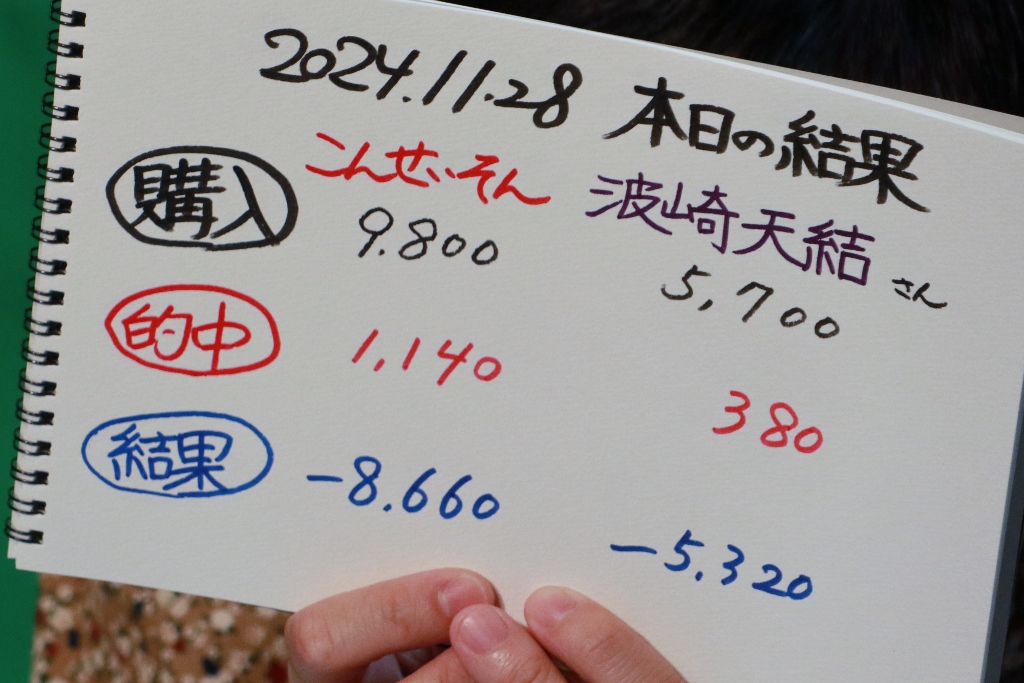 2024.11.28 本日の結果
こんせいそん 波崎天結さん
購入 9.800 5,700
的中 1,140 380
結果 -8.660 -5.320